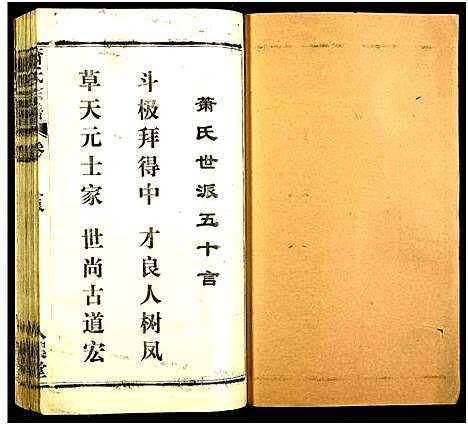 萧氏世派五十言
斗极拜得中 才良人树凤
草天元士家 世尚古道宏